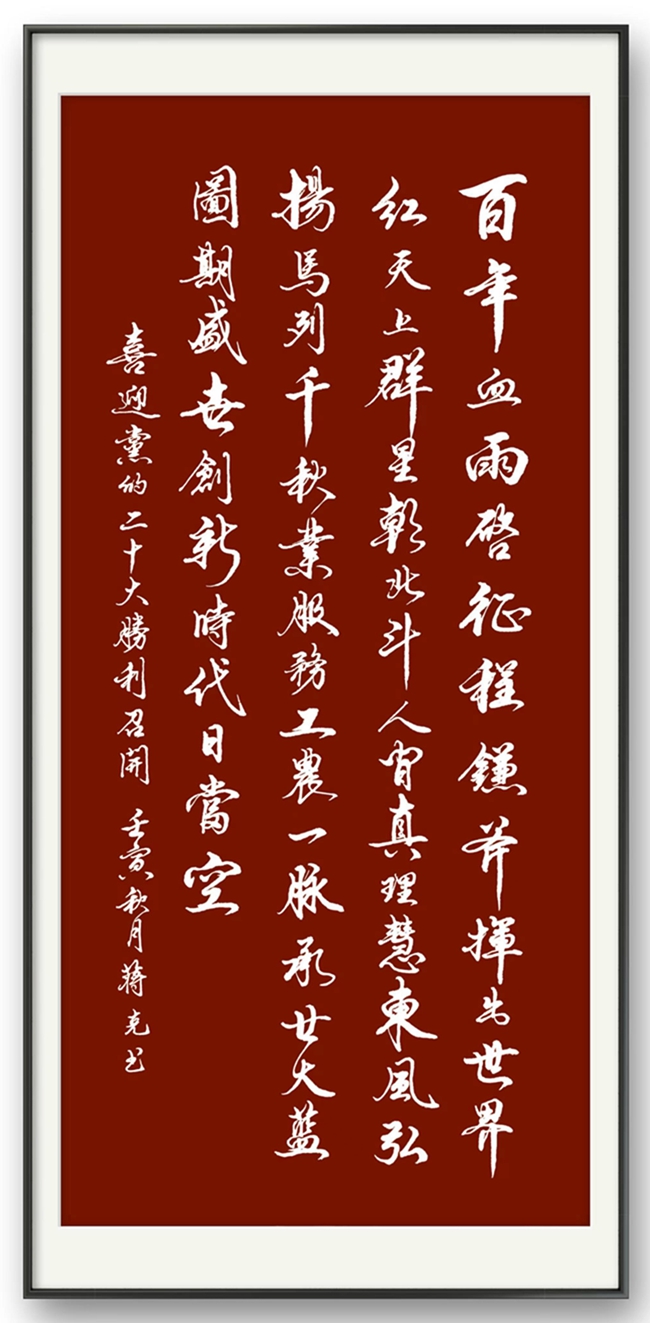 百年血雨啓征程鐮斧揮出世界
紅天上群星彰北斗人間真理慧東風弘
揚馬列千秋業服務工農一脉承廿大藍
圖期盛世創新時代日當空
喜迎黨的二十大勝利召開 壬寅秋月蔣克书